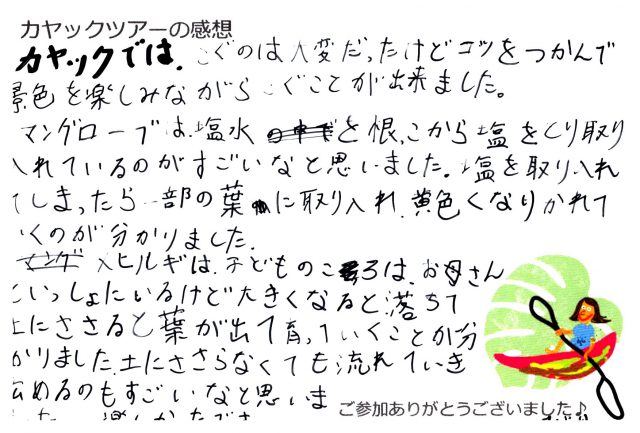 カヤックツアーの感想
カヤックでは、こぐのは大変だったけどコツをつかんで
景色を楽しみながらこぐことが出来ました。
マングローブは、塩水を根っこから塩をとり取り
入れているのがすごいなと思いました。塩を取り入れ
てしまったら一部の葉に取り入れ、黄色くなりかれて
いくのが分かりました。
メヒルギは、子どものころは、お母さん
といっしょにいるけど大きくなると落ちて
土にささると葉が出て育っていくことが分
かりました。土にささらなくても流れていき
広めるのもすごいなと思いま
した。楽しかったです。
ご参加ありがとうございました♪